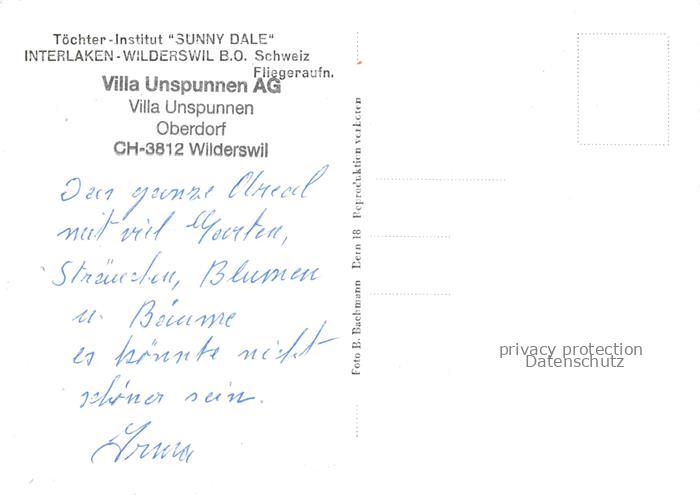 Töchter-Institut "SUNNY DALE"
INTERLAKEN-WILDERSWIL B.O. Schweiz
Fliegeraufn.
Villa Unspunnen AG
Villa Unspunnen
Oberdorf
CH-3812 Wilderswil
Das ganze Areal
mit viel Garten,
Sträuchen, Blumen
u. Bäume
es könnte nicht
schöner sein.
Irma
Foto B. Bachmann Bern 18 Reproduktion verboten
privacy protection
Datenschutz